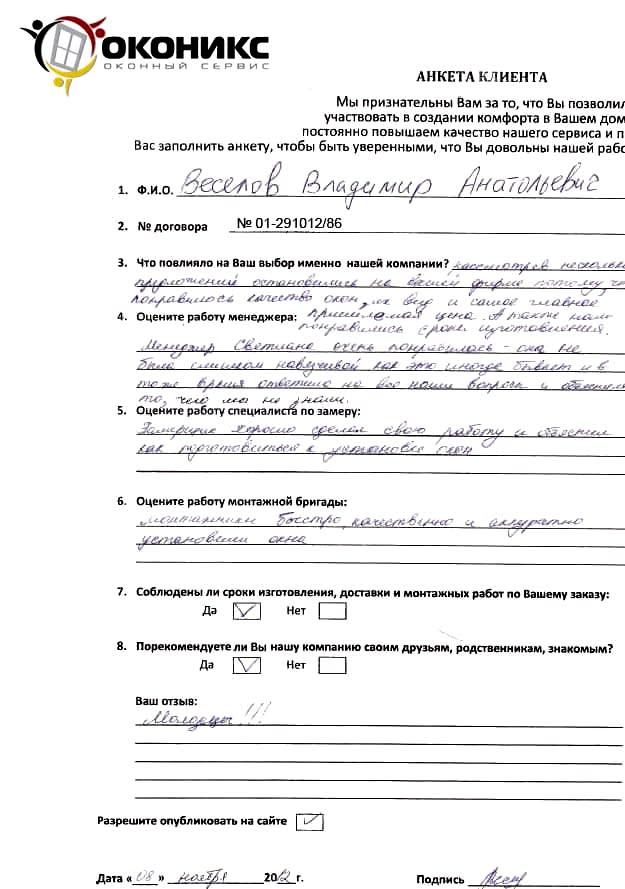 ОКОНИКС
ОКОННЫЙ СЕРВИС
АНКЕТА КЛИЕНТА
Мы признательны Вам за то, что Вы позволил
участвовать в создании комфорта в Вашем дом
постоянно повышаем качество нашего сервиса и п
Вас заполнить анкету, чтобы быть уверенными, что Вы довольны нашей рабо
1. Ф.И.О. Веселов Владимир Анатольевич
2. № договора № 01-291012/86
3. Что повлияло на Ваш выбор именно нашей компании? рассмотрев нескольк
предложений остановились на вашей фирме потому чт
понравилось качество окон, их вид и самое главное
4. Оцените работу менеджера: приемлемая цена. А также нам
понравились сроки изготовления.
Менеджер Светлана очень понравилась - она не
была слишком навязчивой как это иногда бывает и в
тоже время ответила на все наши вопросы и объяснила
то, чего мы не знали.
5. Оцените работу специалиста по замеру:
Замерщик хорошо сделал свою работу и объяснил
как подготовиться к установке окон
6. Оцените работу монтажной бригады:
монтажники быстро, качественно и аккуратно
установили окна
7. Соблюдены ли сроки изготовления, доставки и монтажных работ по Вашему заказу:
Да Нет
8. Порекомендуете ли Вы нашу компанию своим друзьям, родственникам, знакомым?
Да Нет
Ваш отзыв:
Молодцы!!!
Разрешите опубликовать на сайте
Дата «08» ноября 2012 г. Подпись